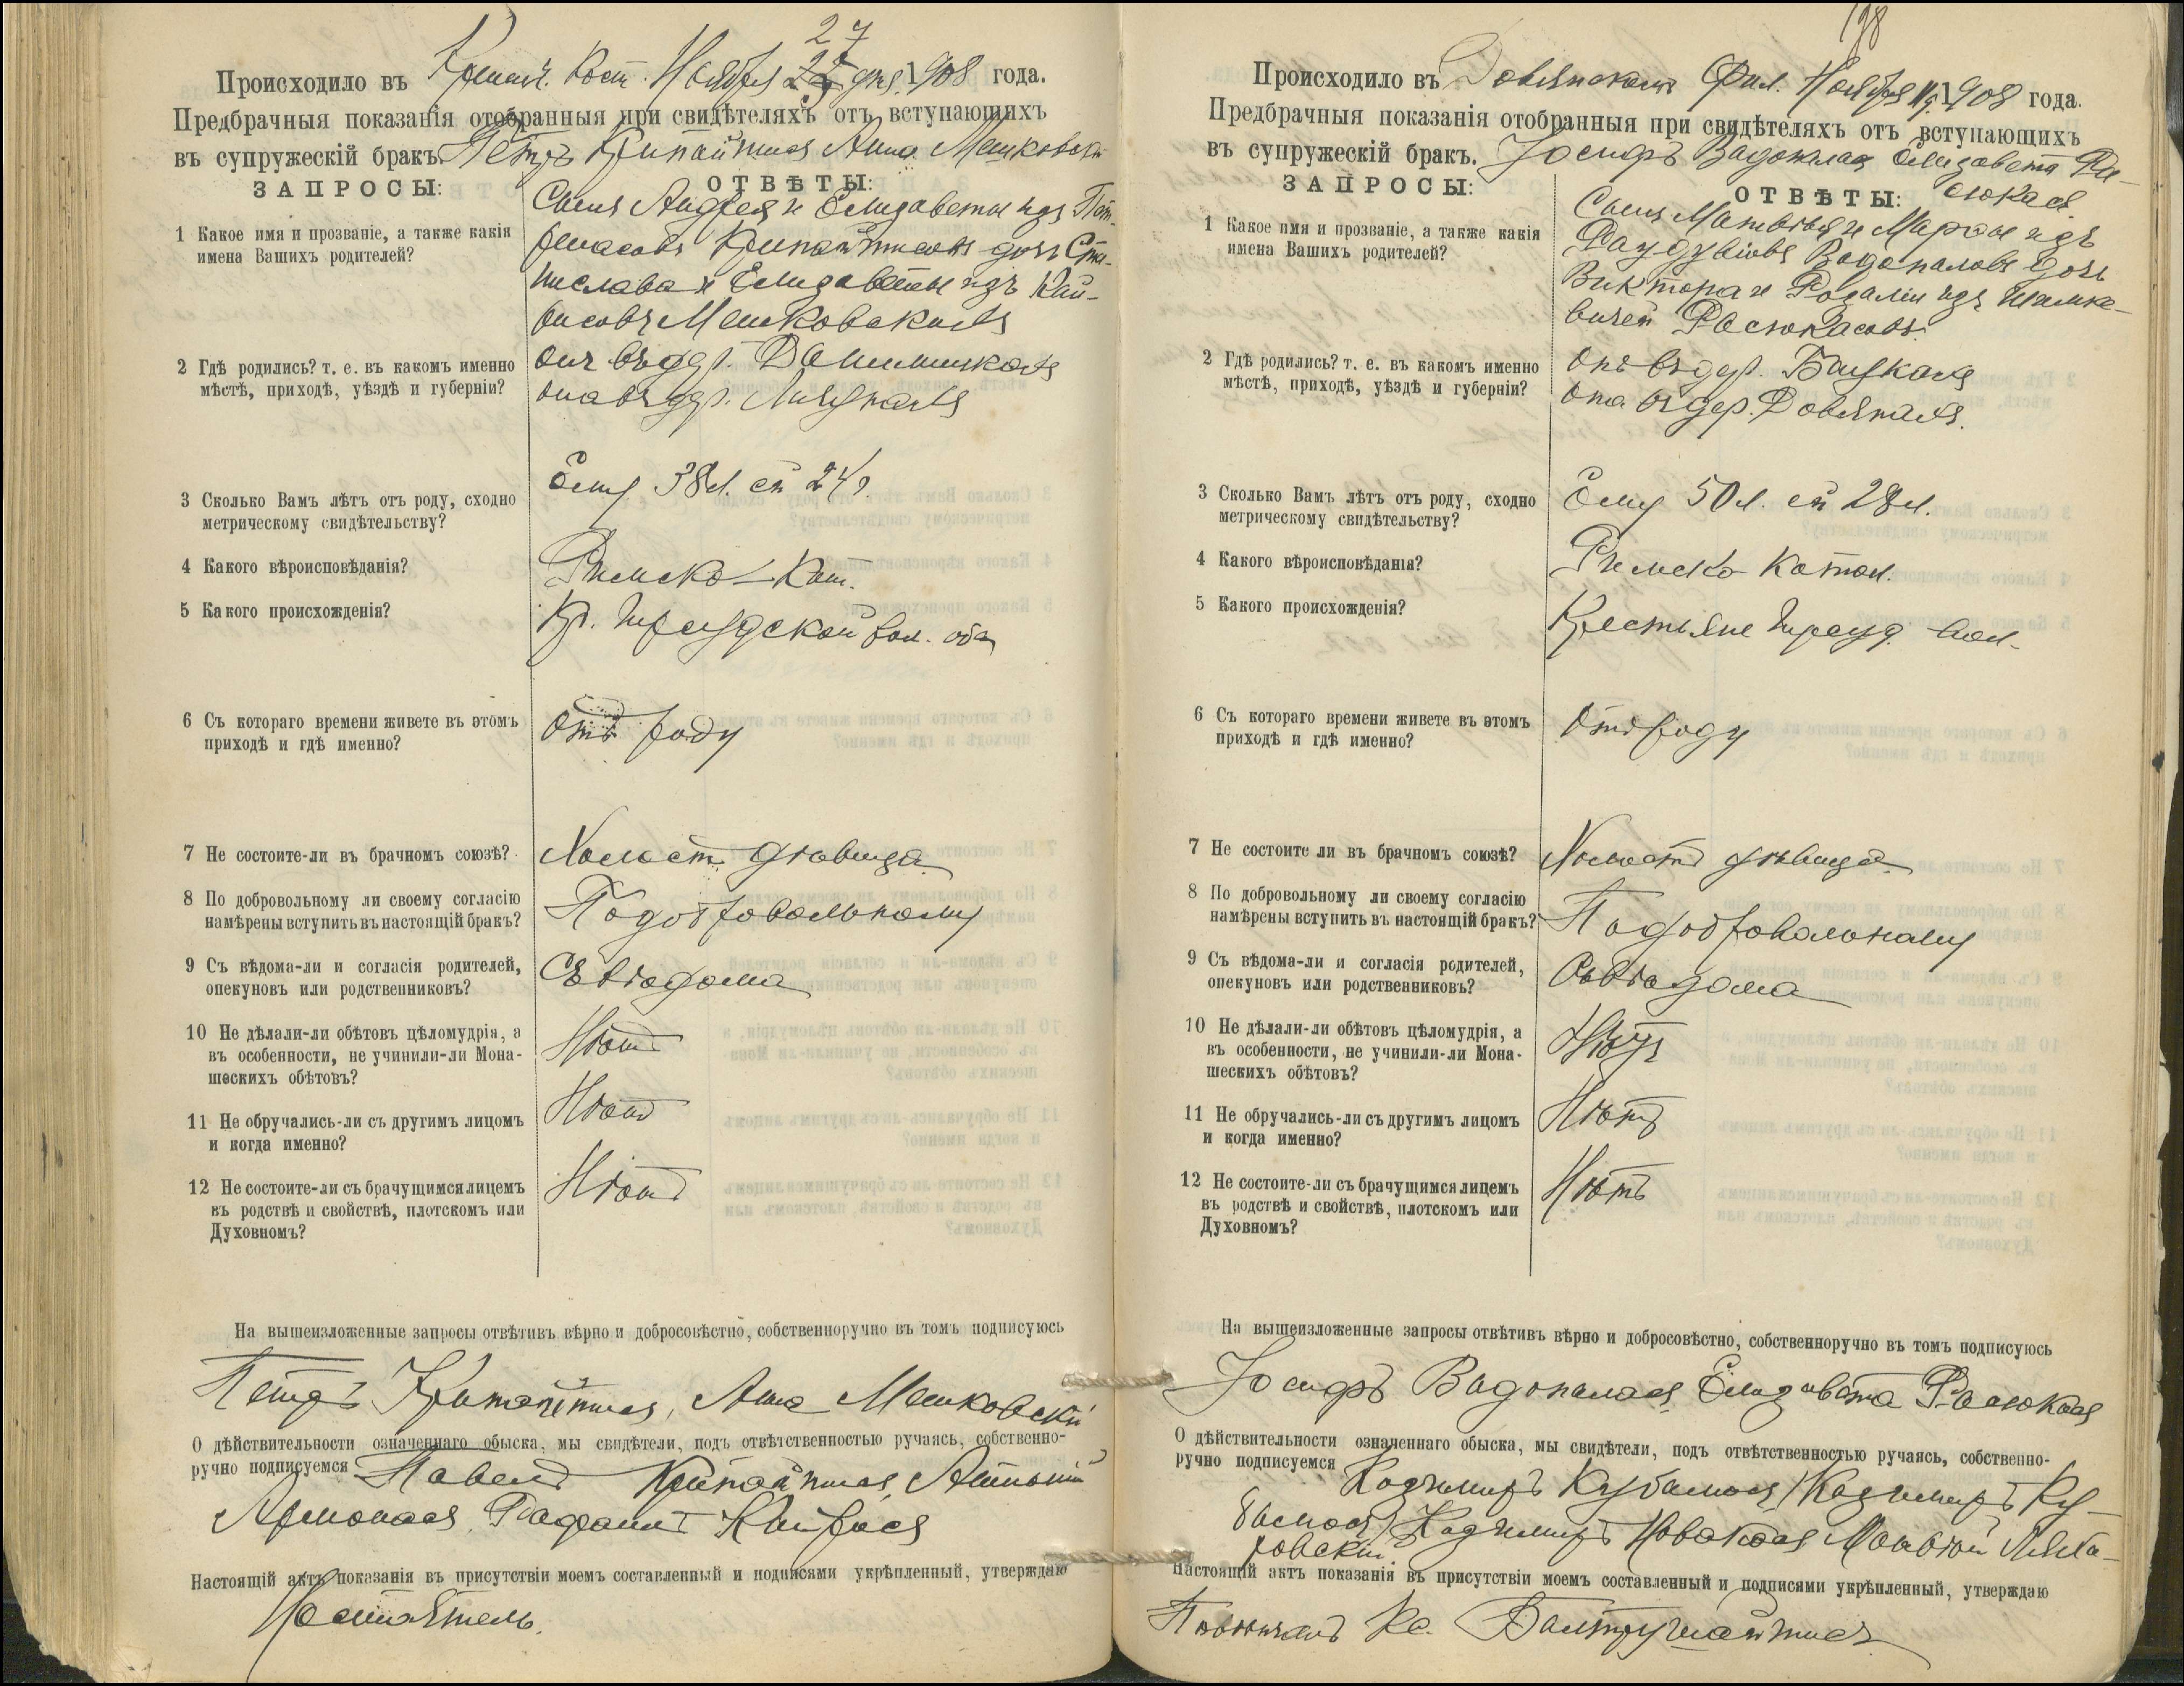 27
Происходило въ Кременч. Кост. Ноября дня 1908 года.
Предбрачныя показанія отобранныя при свидѣтеляхъ отъ вступающихъ
въ супружескій бракъ. Петръ Крипайтисъ Анна Мешковска
ЗАПРОСЫ: ОТВѢТЫ:
1 Какое имя и прозваніе, а также какія
имена Вашихъ родителей?
Сынъ Андрея и Елизаветы изъ
Крипайтисовъ дочь Ста-
нислава и Елизаветы изъ
Мешковскихъ
2 Гдѣ родились? т. е. въ какомъ именно
мѣстѣ, приходѣ, уѣздѣ и губерніи?
Онъ въ дер.
она въ дер.
3 Сколько Вамъ лѣтъ отъ роду, сходно
метрическому свидѣтельству?
Ему 38 л. ей 24 г.
4 Какого вѣроисповѣданія?
Римско-Кат.
5 Какого происхожденія?
Кр. вол. оба
6 Съ котораго времени живете въ этомъ
приходѣ и гдѣ именно?
Отъ роду
7 Не состоите-ли въ брачномъ союзѣ?
Холостъ дѣвица
8 По добровольному ли своему согласію
намѣрены вступить въ настоящій бракъ?
По добровольному
9 Съ вѣдома-ли и согласія родителей,
опекуновъ или родственниковъ?
Съ вѣдома
10 Не дѣлали-ли обѣтовъ цѣломудрія, а
въ особенности, не учинили-ли Мона-
шескихъ обѣтовъ?
Нѣтъ
11 Не обручались-ли съ другимъ лицомъ
и когда именно?
Нѣтъ
12 Не состоите-ли съ брачущимся лицемъ
въ родствѣ и свойствѣ, плотскомъ или
Духовномъ?
Нѣтъ
На вышеизложенные запросы отвѣтивъ вѣрно и добросовѣстно, собственноручно въ томъ подписуюсь
Петръ Крипайтисъ, Анна Мешковска
О дѣйствительности означеннаго обыска, мы свидѣтели, подъ отвѣтственностью ручаясь, собственно-
ручно подписуемся Павелъ Крипайтисъ, Антоній
Рафаилъ
Настоящій актъ показанія въ присутствіи моемъ составленный и подписями укрѣпленный, утверждаю
Настоятель
198
Происходило въ Довянскомъ Фил. Ноября 1908 года.
Предбрачныя показанія отобранныя при свидѣтеляхъ отъ вступающихъ
въ супружескій бракъ. Іосифъ Елизавета Ра-
сюкас
ЗАПРОСЫ: ОТВѢТЫ:
1 Какое имя и прозваніе, а также какія
имена Вашихъ родителей?
Сынъ Матвѣя и изъ
Вадопаловъ дочь
Виктора и Розаліи изъ
Расюкасовъ
2 Гдѣ родились? т. е. въ какомъ именно
мѣстѣ, приходѣ, уѣздѣ и губерніи?
Онъ въ дер.
Она въ дер.
3 Сколько Вамъ лѣтъ отъ роду, сходно
метрическому свидѣтельству?
Ему 50 л. ей 28 л.
4 Какого вѣроисповѣданія?
Римско Катол.
5 Какого происхожденія?
Крестьяне вол.
6 Съ котораго времени живете въ этомъ
приходѣ и гдѣ именно?
Отъ роду
7 Не состоите ли въ брачномъ союзѣ?
Холостъ дѣвица
8 По добровольному ли своему согласію
намѣрены вступить въ настоящій бракъ?
По добровольному
9 Съ вѣдома-ли и согласія родителей,
опекуновъ или родственниковъ?
Съ вѣдома
10 Не дѣлали-ли обѣтовъ цѣломудрія, а
въ особенности, не учинили-ли Мона-
шескихъ обѣтовъ?
Нѣтъ
11 Не обручались-ли съ другимъ лицомъ
и когда именно?
Нѣтъ
12 Не состоите-ли съ брачущимся лицемъ
въ родствѣ и свойствѣ, плотскомъ или
Духовномъ?
Нѣтъ
На вышеизложенные запросы отвѣтивъ вѣрно и добросовѣстно, собственноручно въ томъ подписуюсь
Іосифъ Вадопаласъ Елизавета Расюкас
О дѣйствительности означеннаго обыска, мы свидѣтели, подъ отвѣтственностью ручаясь, собственно-
ручно подписуемся Казимиръ Казимиръ
Казимиръ Матвѣй
Настоящій актъ показанія въ присутствіи моемъ составленный и подписями укрѣпленный, утверждаю
Кс. Балтрушайтисъ